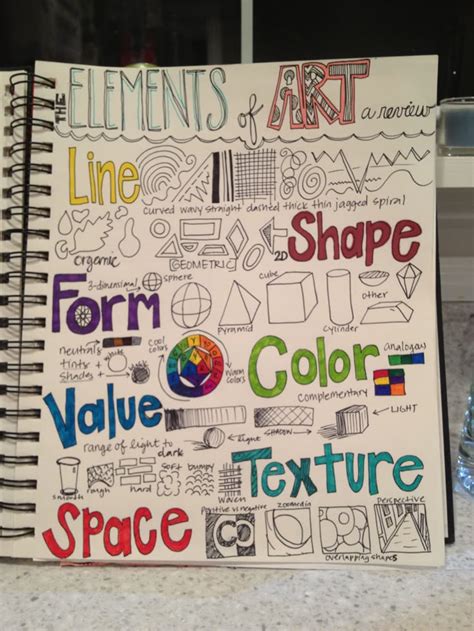 THE ELEMENTS of ART a review
Line
curved wavy straight dashed thick thin jagged spiral
organic
GEOMETRIC
2D
Shape
3-dimensional
sphere
cube
Form
pyramid
cylinder
other
neutrals
cool colors
tints +
white
shades +
warm colors
Color
analogous
complementary
Value
range of light to dark
light
SHADOW
LIGHT
smooth
rough
hard
soft
bumpy
woven
Texture
Space
Positive vs negative
zoomed in
perspective
overlapping shapes